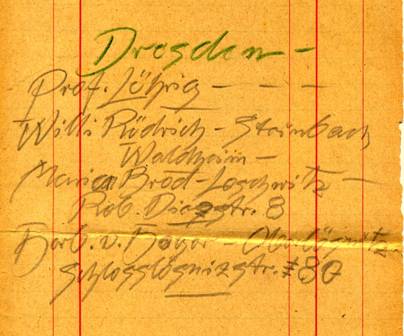 Dresden -
Prof. Löhrig - - -
Willi Rüdrich - Steinbach
Waldheim -
Maria Brod - Loschwitz -
Rob. Diezstr. 8
Barb. v. - 
Schlosslösnizstr. #80